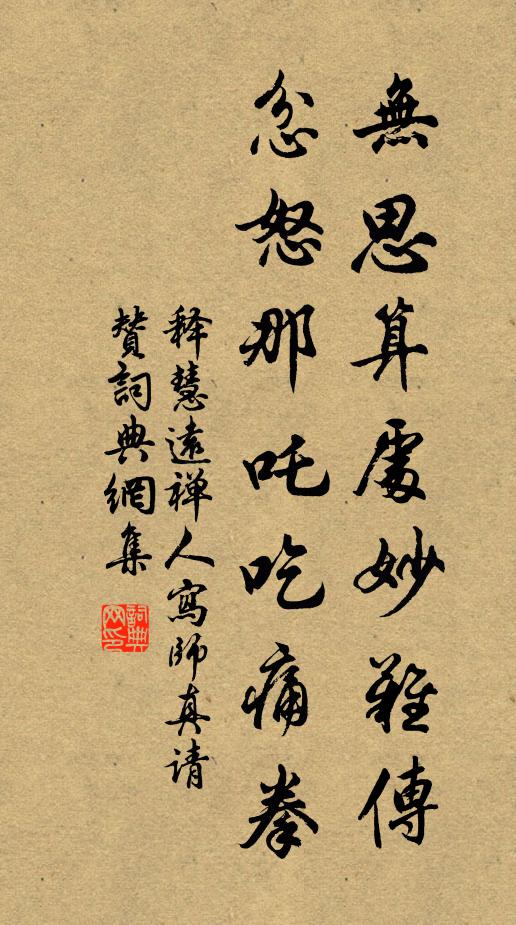 無思算處妙難傳
忿怒那吒吃痛拳
释慧遠禅人寫師真请
贊詞典網集
詞典网印